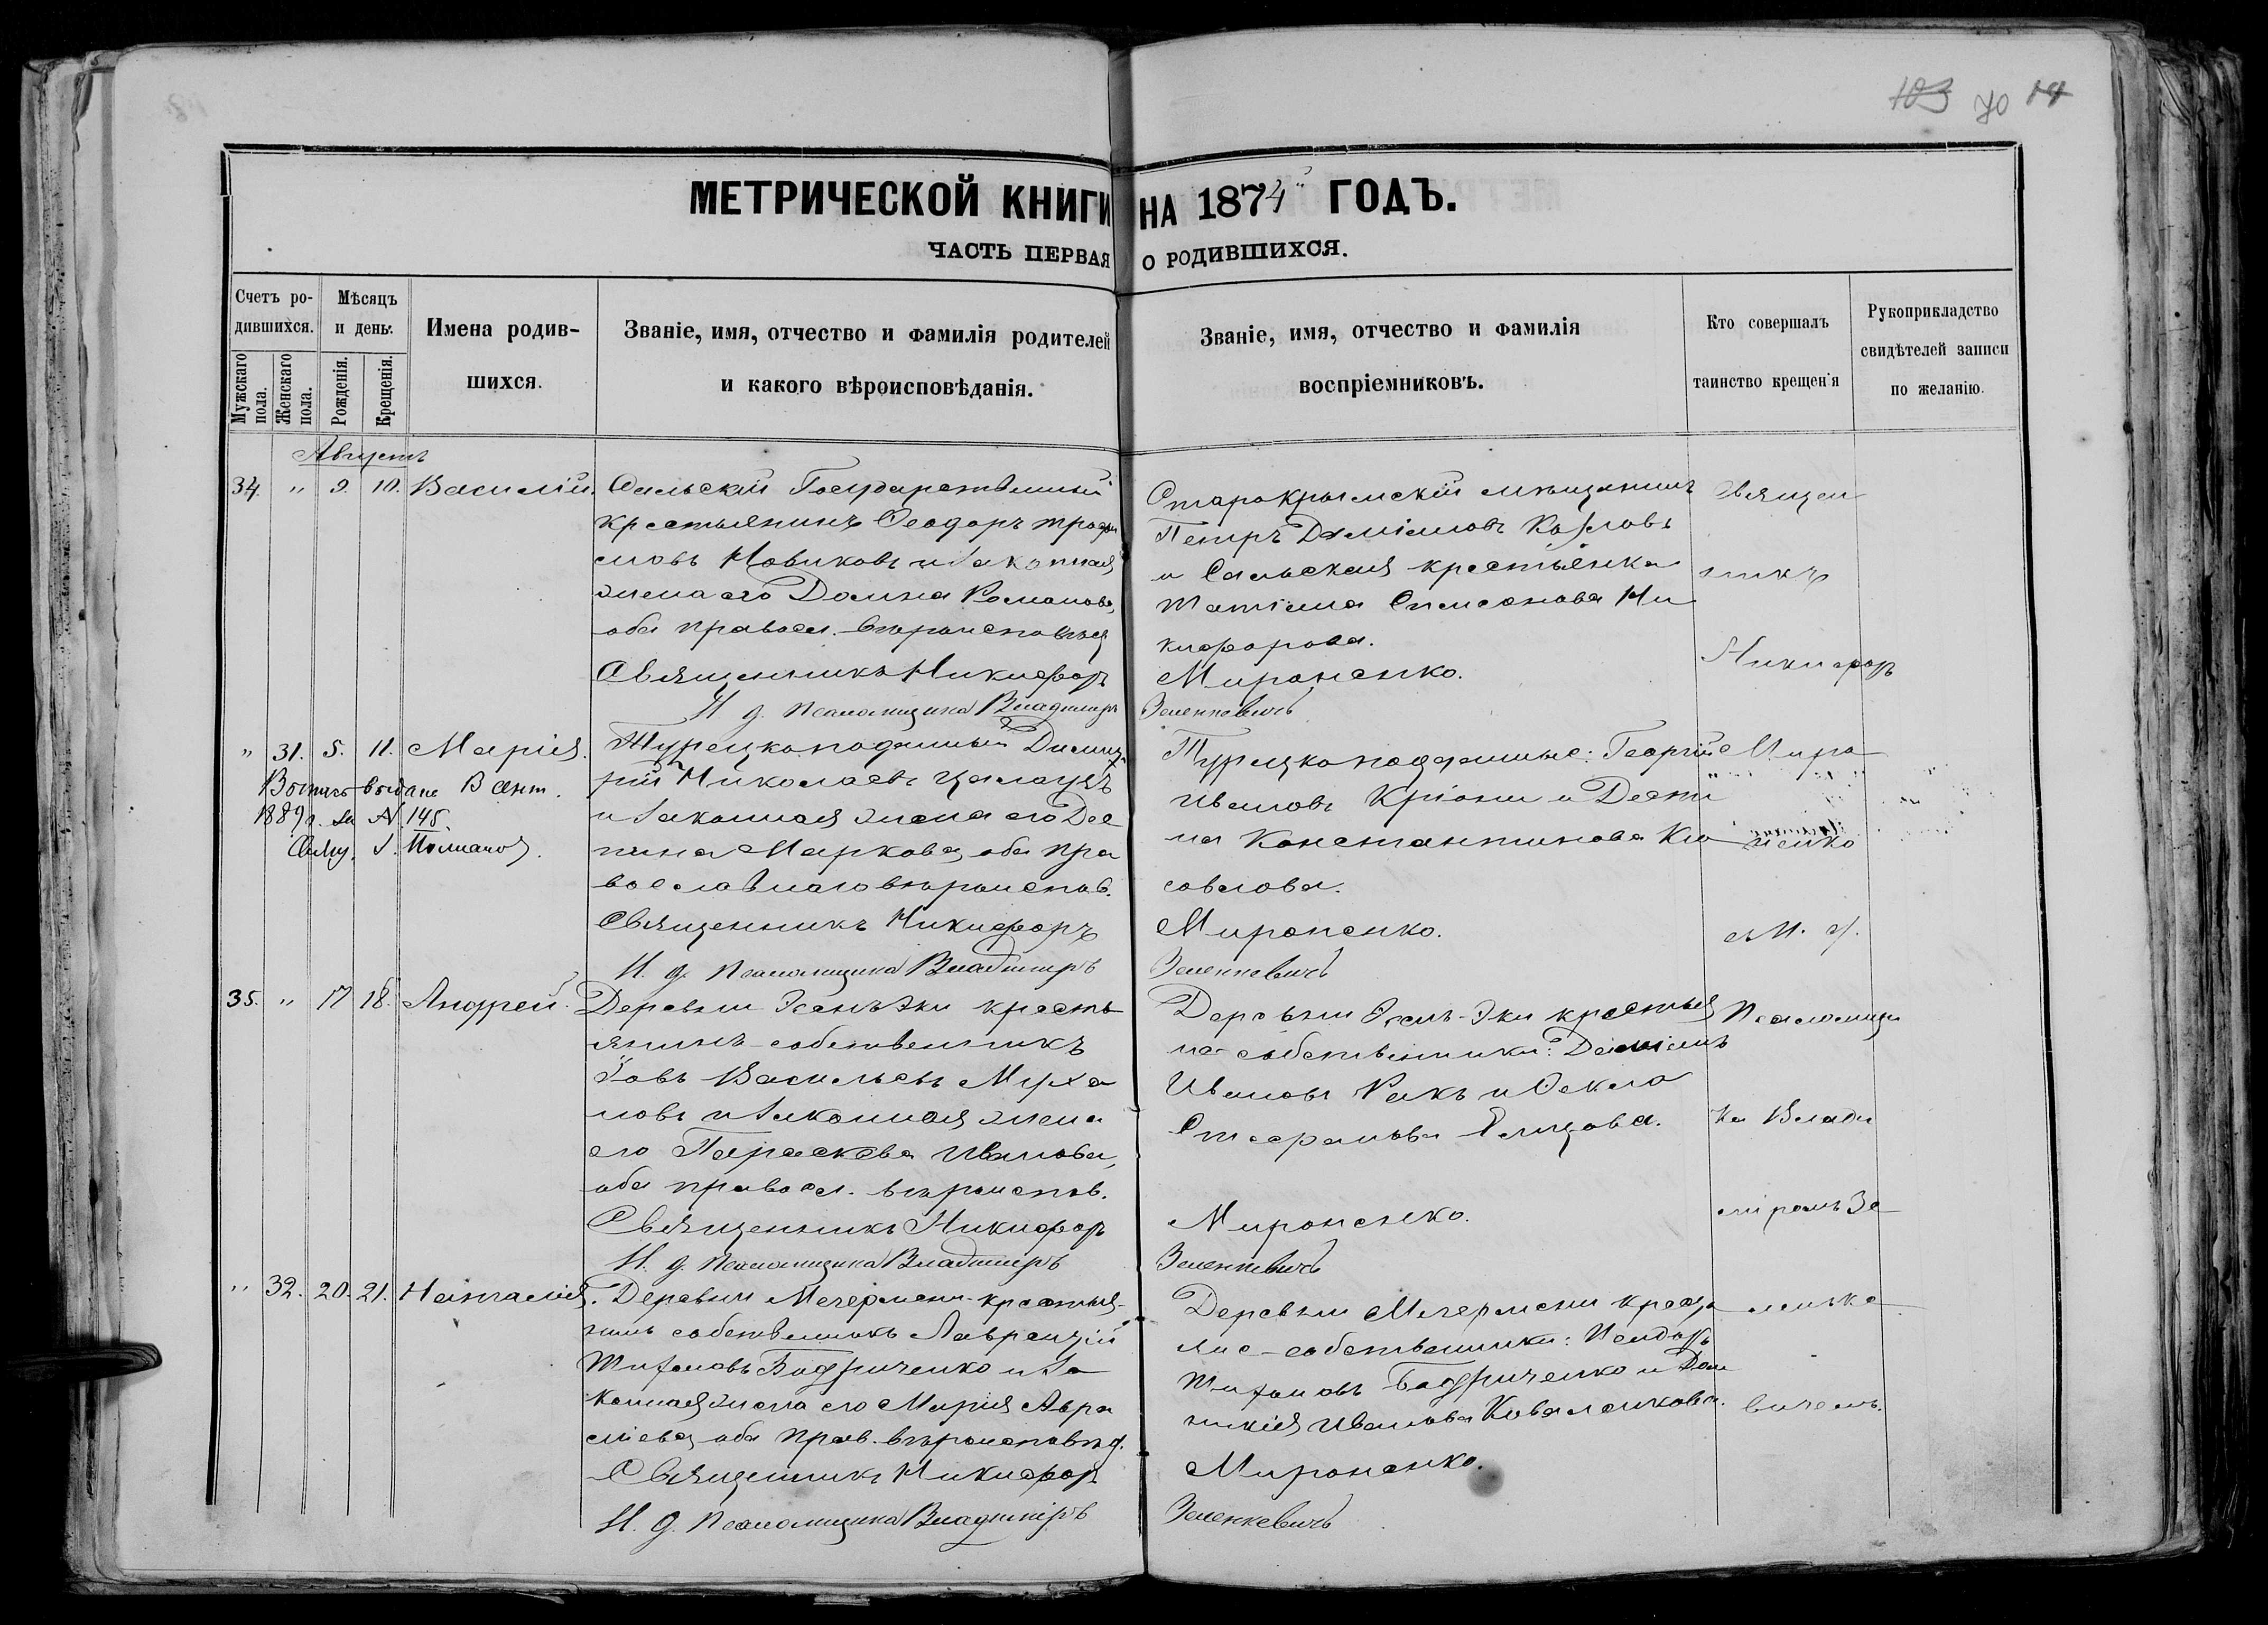 103 70
МЕТРИЧЕСКОЙ КНИГИ НА 1874 ГОДЪ.
ЧАСТЬ ПЕРВАЯ О РОДИВШИХСЯ.
Счетъ ро-
дившихся.
Мужскаго пола.
Женскаго пола.
Мѣсяцъ
и день.
Рожденія.
Крещенія.
Имена родив-
шихся.
Званіе, имя, отчество и фамилія родителей
и какого вѣроисповѣданія.
Званіе, имя, отчество и фамилія
воспріемниковъ.
Кто совершалъ
таинство крещенія
Рукоприкладство
свидѣтелей записи
по желанію.
Августъ
34. " 9. 10. Василій.
Сальскій Государственный
крестьянинъ Ѳеодоръ Трофи
мовъ Новиковъ и законная
жена его Домна Романова,
оба правосл. вѣроисповѣд
Священникъ Никифоръ
И. д. Псаломщика Владиміръ
Старокрымскій мѣщанинъ
Петръ Даміановъ Козловъ
и Сальская крестьянка
Татіана Симеонова Ни
кифорова.
Мироненко.
Зеленкевичъ
Священ
никъ
Никифоръ
" 31. 5. 11. Марія.
Выпись выдана
1889 г. за № 145.
Турецкоподданный Димит
рій Николаевъ
и законная жена его Дес
пина Маркова, оба пра
вославнаго вѣроисповѣд.
Священникъ Никифоръ
И. д. Псаломщика Владиміръ
Турецкоподданные: Георгій
Ивановъ Кріони и Деспи
на Константинова Кю
Мироненко.
Зеленкевичъ
Миро
ненко
съ И. д.
35. " 17 18. Андрей.
Деревни Эки кресть
янинъ-собственникъ
Іовъ Васильевъ
новъ и законная жена
его Параскева Иванова,
оба правосл. вѣроисповѣд.
Священникъ Никифоръ
И. д. Псаломщика Владиміръ
Деревни Эки крестья
не собственники: Даміанъ
Ивановъ Ракъ и Ѳекла
Стефанова
Мироненко.
Зеленкевичъ
Псаломщи
ка Влади
міромъ Зе
" 32. 20. 21. Наталія.
Деревни крестья
нинъ собственникъ Лаврентій
Тихоновъ Бондриченко и за
конная жена его Марія Авра
міева, оба прав. вѣроисповѣд.
Священникъ Никифоръ
И. д. Псаломщика Владиміръ
Деревни крест
яне-собственники: Исидоръ
Тихоновъ Бондриченко и Дом
никія Иванова Коваленкова.
Мироненко.
Зеленкевичъ
ленке
вичемъ.